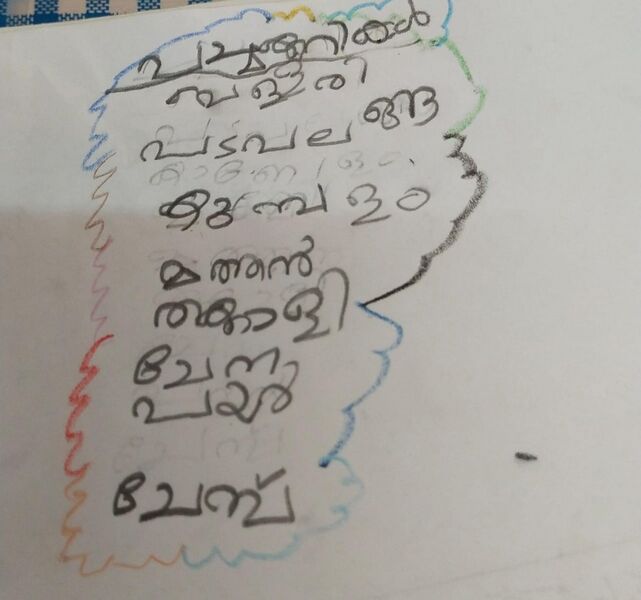 പച്ചക്കറികൾ
വള്ളരി
പടവലങ്ങ
കുമ്പളം
മത്തൻ
തക്കാളി
ചേന
പയർ
ചേമ്പ്